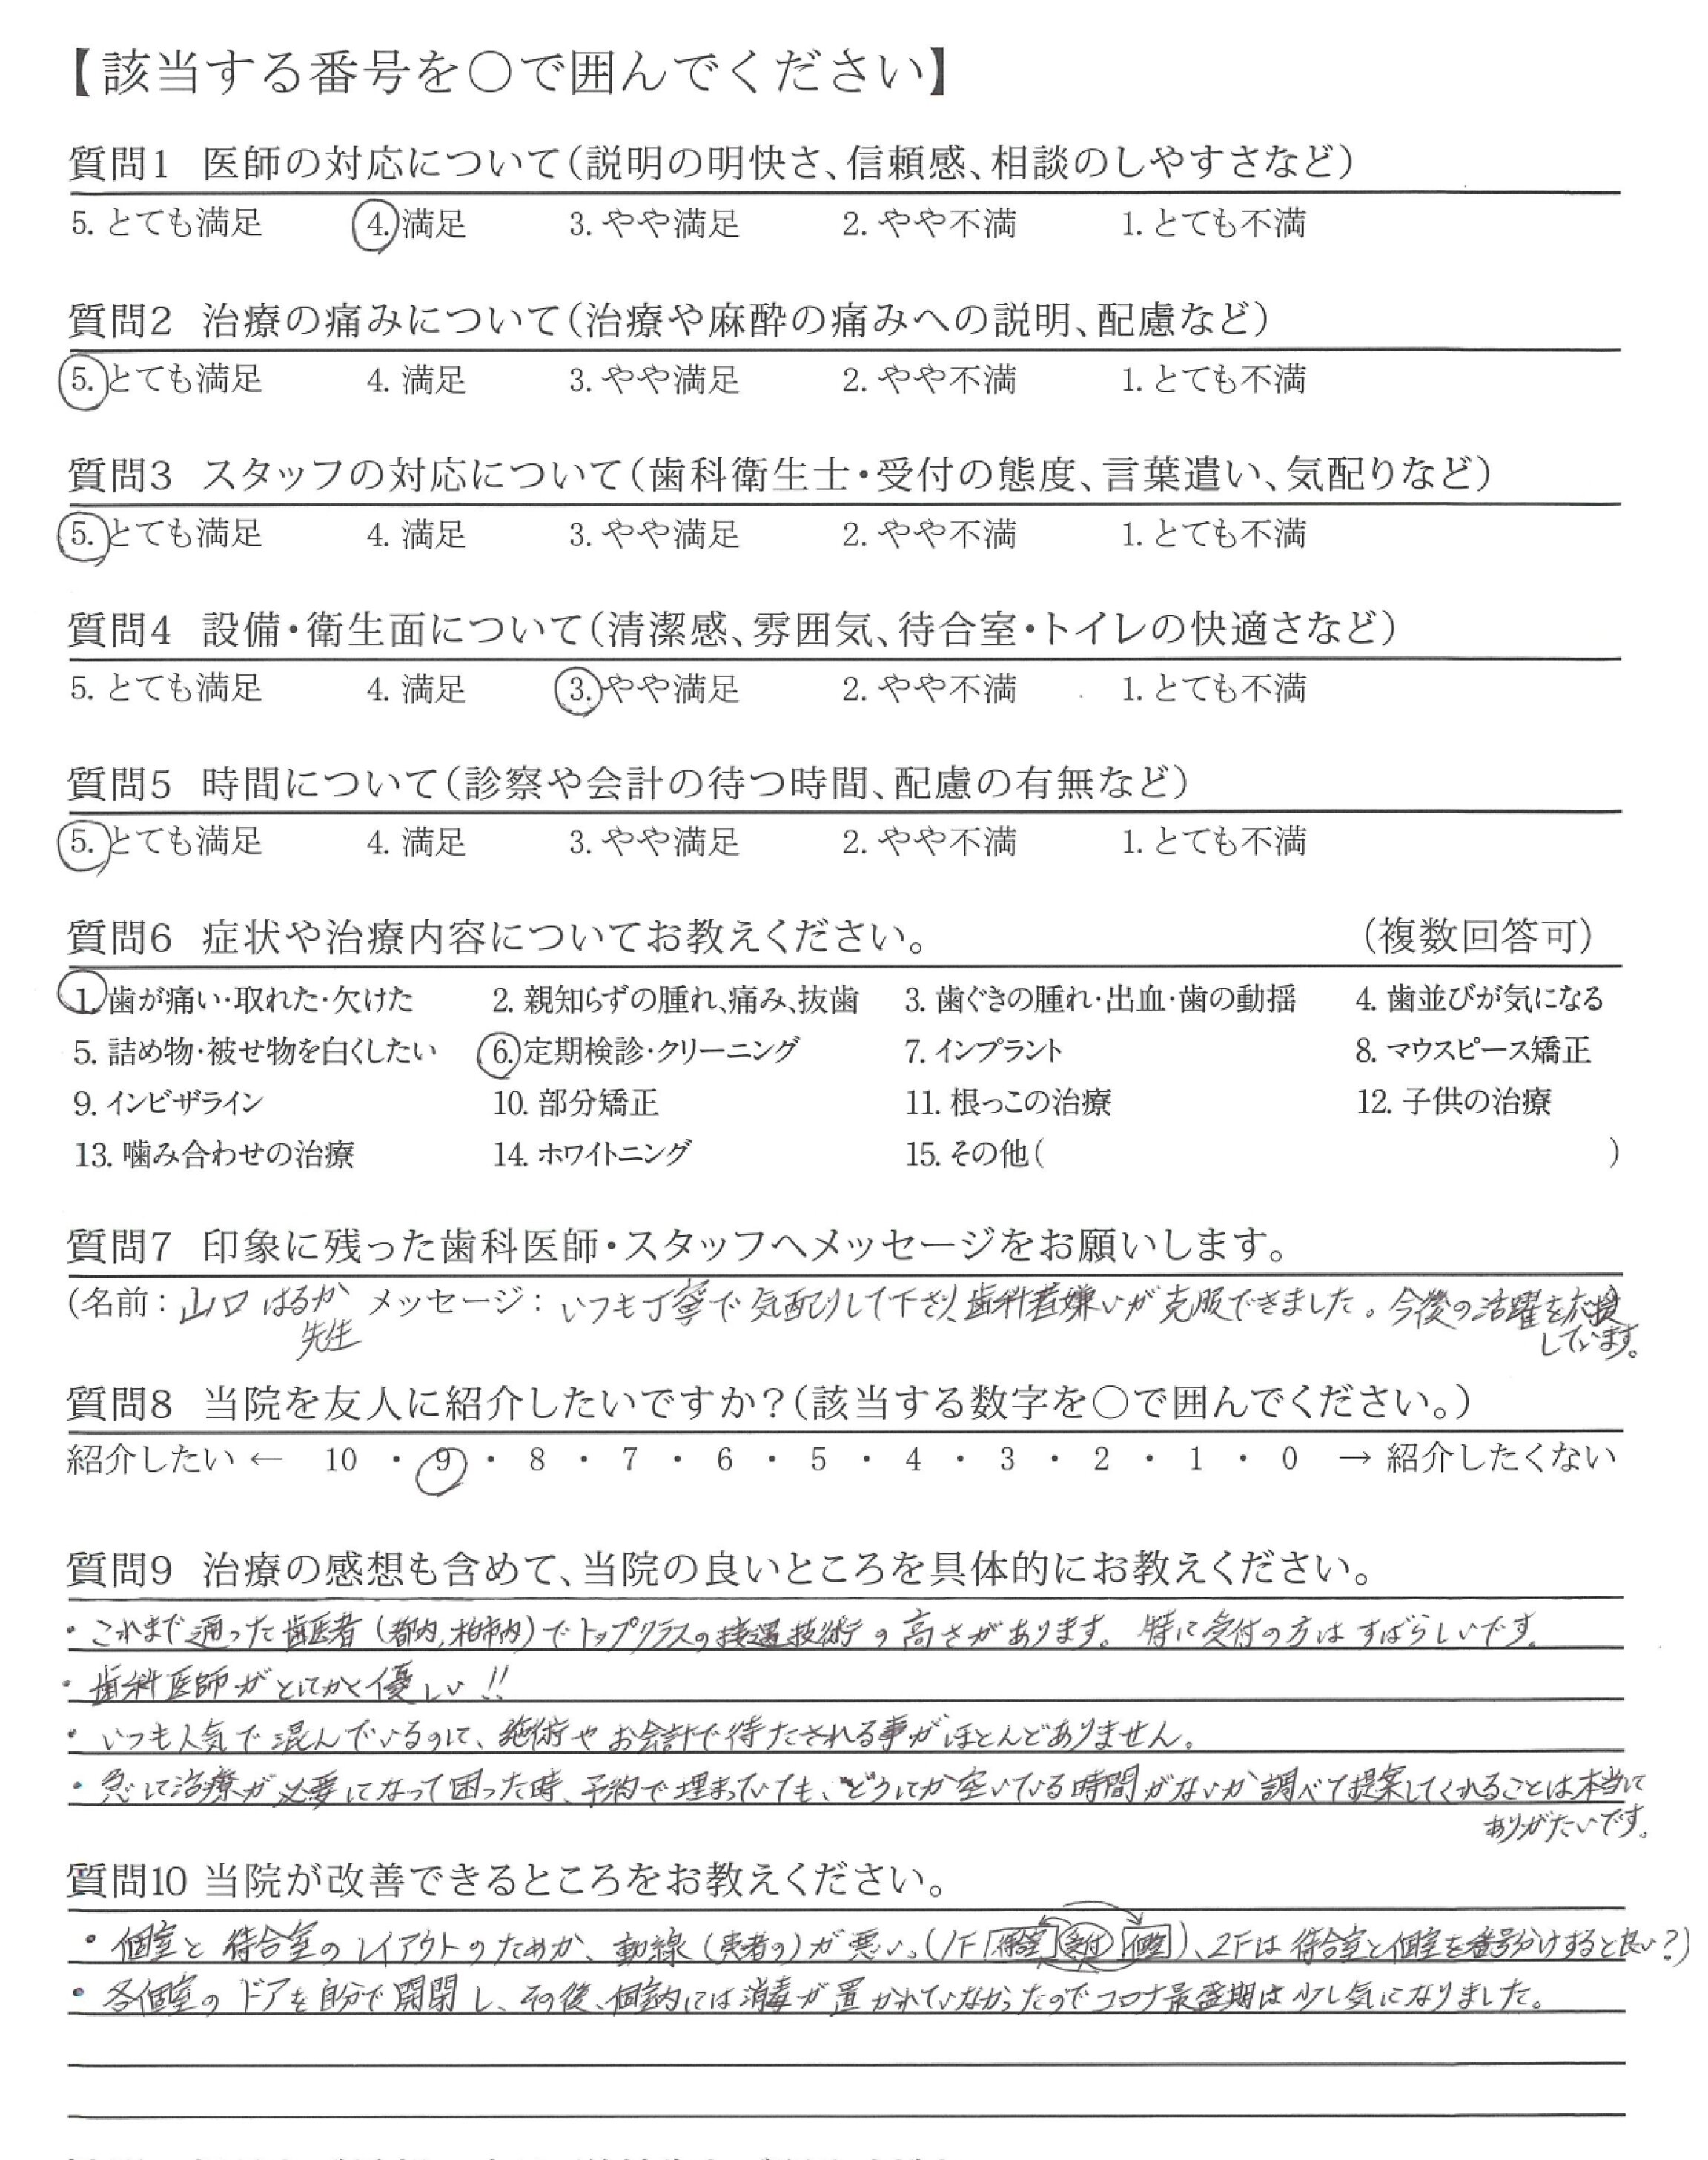 【該当する番号を○で囲んでください】
質問1 医師の対応について(説明の明快さ、信頼感、相談のしやすさなど)
5. とても満足 4. 満足 3. やや満足 2. やや不満 1. とても不満
質問2 治療の痛みについて(治療や麻酔の痛みへの説明、配慮など)
5. とても満足 4. 満足 3. やや満足 2. やや不満 1. とても不満
質問3 スタッフの対応について(歯科衛生士・受付の態度、言葉遣い、気配りなど)
5. とても満足 4. 満足 3. やや満足 2. やや不満 1. とても不満
質問4 設備・衛生面について(清潔感、雰囲気、待合室・トイレの快適さなど)
5. とても満足 4. 満足 3. やや満足 2. やや不満 1. とても不満
質問5 時間について(診察や会計の待つ時間、配慮の有無など)
5. とても満足 4. 満足 3. やや満足 2. やや不満 1. とても不満
質問6 症状や治療内容についてお教えください。 (複数回答可)
1. 歯が痛い・取れた・欠けた 2. 親知らずの腫れ、痛み、抜歯 3. 歯ぐきの腫れ・出血・歯の動揺 4. 歯並びが気になる
5. 詰め物・被せ物を白くしたい 6. 定期検診・クリーニング 7. インプラント 8. マウスピース矯正
9. インビザライン 10. 部分矯正 11. 根っこの治療 12. 子供の治療
13. 噛み合わせの治療 14. ホワイトニング 15. その他( )
質問7 印象に残った歯科医師・スタッフへメッセージをお願いします。
(名前: 山口 はるか メッセージ: いつも丁寧で気配りして下さり、歯科者嫌いが克服できました。今後の活躍を応援
先生 しています。
質問8 当院を友人に紹介したいですか?(該当する数字を○で囲んでください。)
紹介したい ← 10 ・ 9 ・ 8 ・ 7 ・ 6 ・ 5 ・ 4 ・ 3 ・ 2 ・ 1 ・ 0 → 紹介したくない
質問9 治療の感想も含めて、当院の良いところを具体的にお教えください。
・これまで通った歯医者(都内、柏市内)でトップクラスの接遇技術の高さがあります。特に受付の方はすばらしいです。
・歯科医師がとにかく優しい!!
・いつも人気で混んでいるのに、施術やお会計で待たされる事がほとんどありません。
・急に治療が必要になって困った時、予約で埋まっていても、どうにか空いている時間がないか調べて提案してくれることは本当に
ありがたいです。
質問10 当院が改善できるところをお教えください。
・個室と待合室のレイアウトのためか、動線(患者の)が悪い。(1F 待合室 受付 個室)、2Fは待合室と個室を番号分けすると良い?)
・各個室のドアを自分で開閉し、その後、個室内には消毒が置かれていなかったのでコロナ最盛期は少し気になりました。